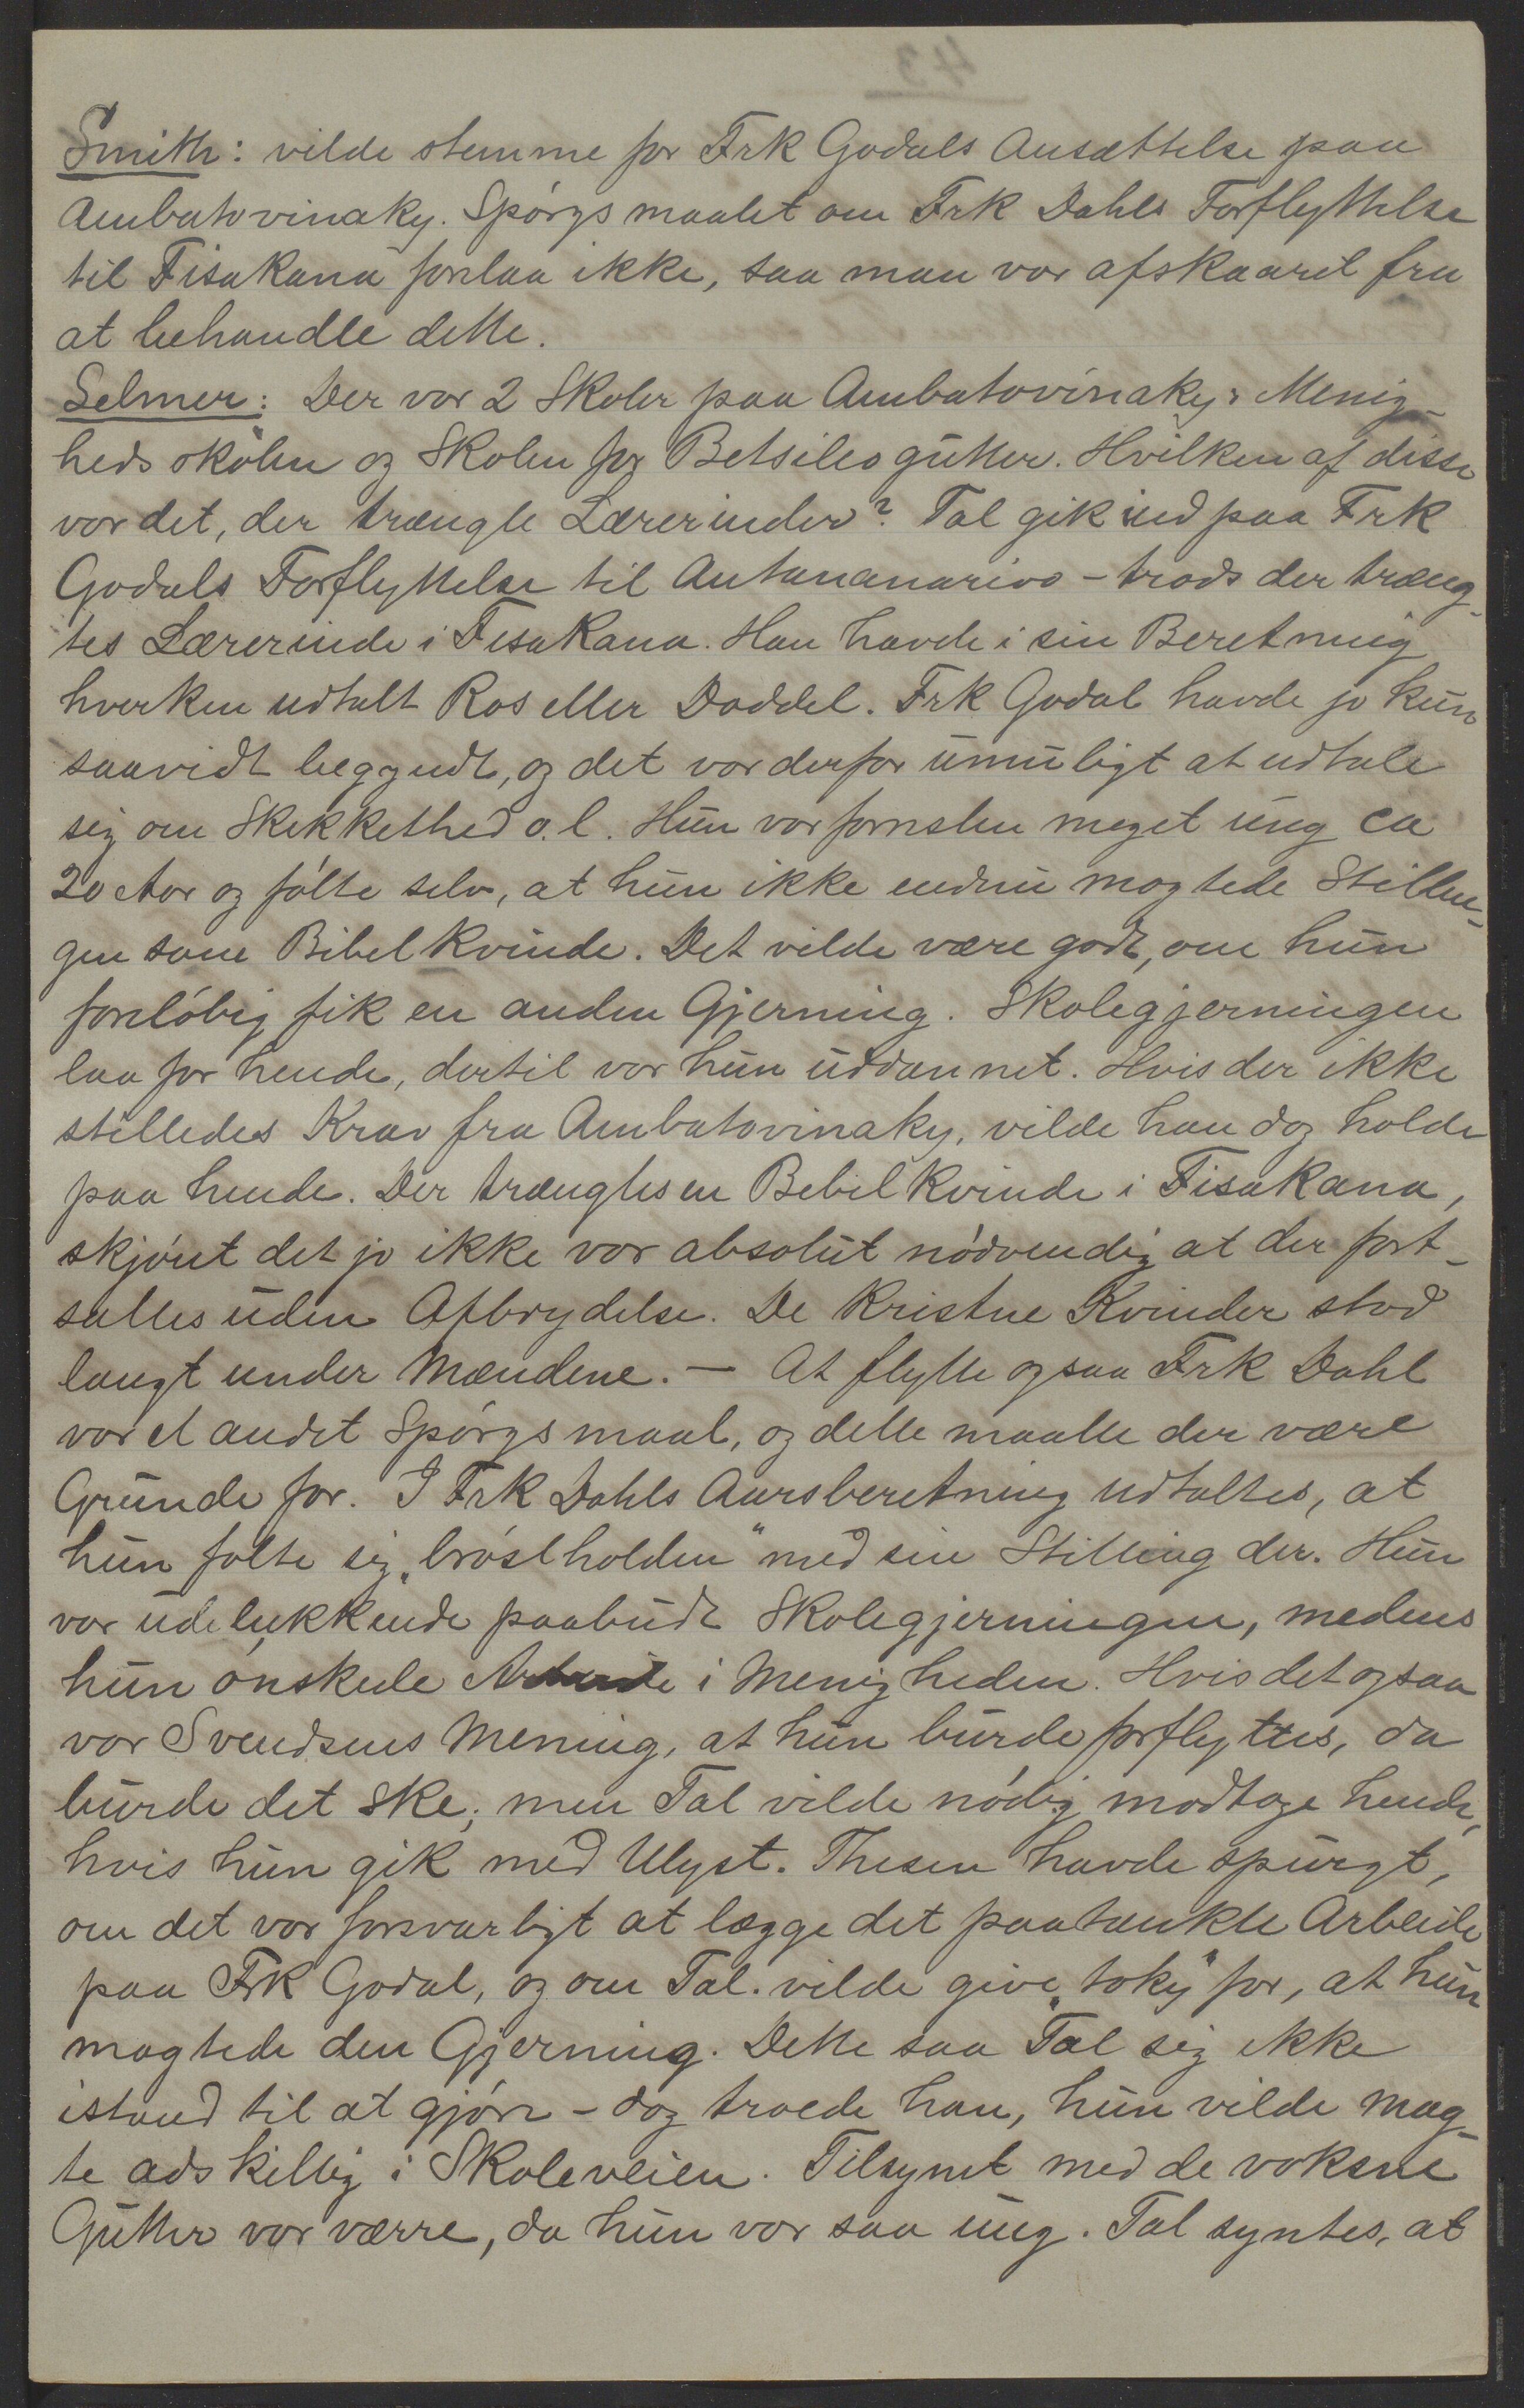 Smith: vilde stemme for Frk Godals Ansættelse paa
Ambatovinaky. Spørgsmaalet om Frk Dahls Forflyttelse
til Fisakana forelaa ikke, saa man var afskaaret fra
at behandle dette.
Selmer: Der var 2 Skoler paa Ambatovinaky: Menig-
hedsskolen og Skolen for Betsileogutter. Hvilken af disse
var det, der trængte Lærerinder? Tal gik ind paa Frk
Godals Forflyttelse til Antananarivo - trods der træng-
tes Lærerinde i Fisakana. Han havde i sin Beretning
hverken udtalt Ros eller Daddel. Frk Godal havde jo kun
saavidt begyndt, og det var derfor umuligt at udtale
sig om Skikkethed o.l. Hun var forresten meget ung ca
20 Aar og følte selv, at hun ikke endnu magtede Stillin-
gen som Bibelkvinde. Det vilde være godt, om hun
foreløbig fik en anden Gjerning. Skolegjerningen
laa for hende, dertil var hun uddannet. Hvis der ikke
stilledes Krav fra Ambatovinaky, vilde han dog holde
paa hende. Der trængtes en Bibelkvinde i Fisakana,
skjønt det jo ikke var absolut nødvendig at der fort-
sattes uden Afbrydelse. De kristne Kvinder stod
langt under Mændene. — At flytte ogsaa Frk Dahl
var et andet Spørgsmaal, og dette maatte der være
Grunde for. I Frk Dahls Aarsberetning udtaltes, at
hun følte sig „brøstholden" med sin Stilling der. Hun
var udelukkende paabudt Skolegjerningen, medens
hun ønskede Arbeide i Menigheden. Hvis det ogsaa
var Svendsens Mening, at hun burde forflyttes, da
burde det ske; men Tal vilde nødig modtage hende,
hvis hun gik med Ulyst. Thesen havde spurgt,
om det var forsvarligt at lægge det paatænkte Arbeide
paa Frk Godal, og om Tal. vilde give „toky" for, at hun
magtede den Gjerning. Dette saa Tal sig ikke
istand til at gjøre - dog troede han, hun vilde mag-
te adskillig i Skoleveien. Tilsynet med de voksne
Gutter var værre, da hun var saa ung. Tal syntes, at